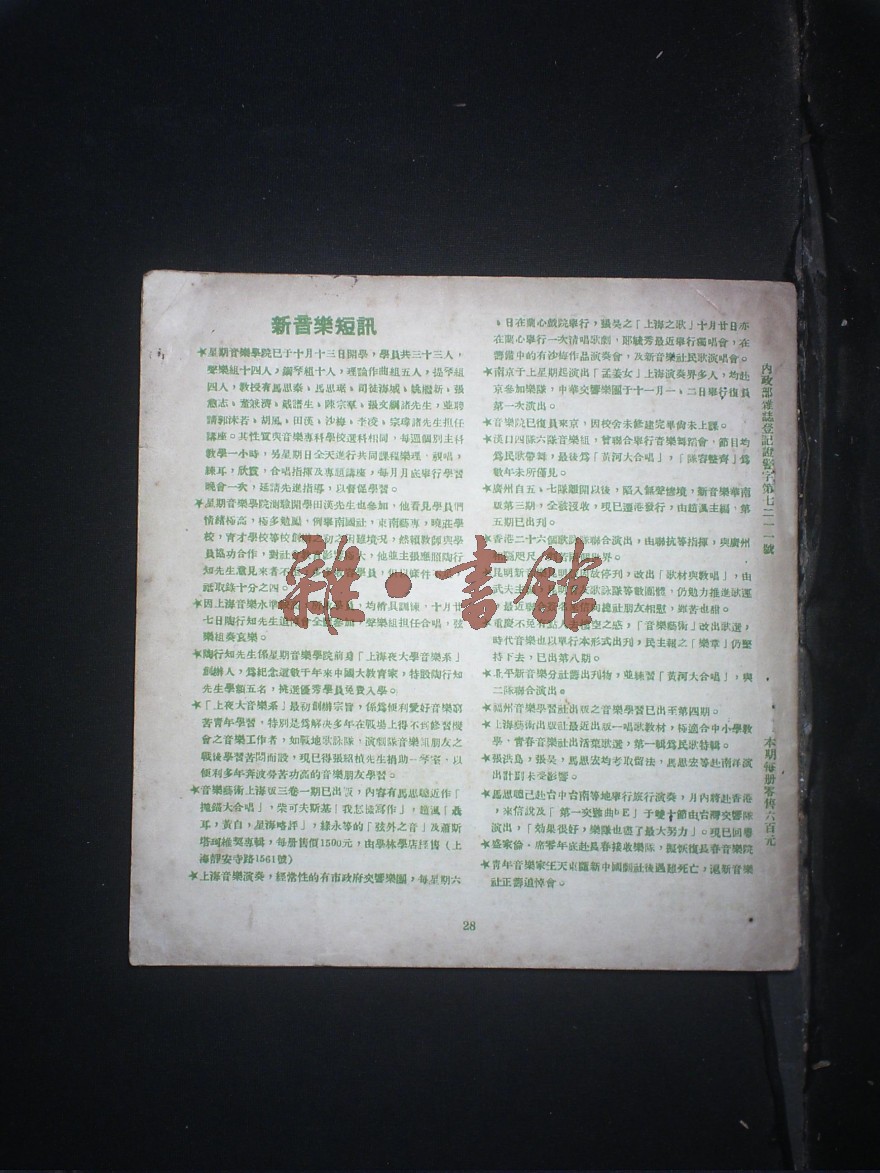 新音樂短訊
★星期音樂學院已于十月十三日開學，學員共三十三人，
聲樂組十四人，鋼琴組十人，理論作曲組五人，提琴組
四人，教授有馬思泰、馬思琚、司徒海城、姚繼新、張
意志、董 濟、戴譜生、陳宗羣、張文綱諸先生，並聘
請郭沫若、胡風、田漢、沙梅、李凌、宗瑋諸先生担任
講座。其性質與音樂專科學校選科相同，每週個別主科
教學一小時，另星期日全天進行共同課程樂理，視唱，
練耳，欣賞，合唱指揮及專題講座，每月月底舉行學習
晚會一次，延請先進指導，以督促學習。
★星期音樂學院 開學田漢先生也參加，他看見學員們
情緒極高，極多勉勵，例舉南國社，東南藝專，曉莊學
校，育才學校等校創 之初 困難境況，然賴教師與學
員協功合作，對社會 大，他並主張應照陶行
知先生意見來者不 學員，但以條件
祗取錄十分之四。
★因上海音樂水準 學員，均稍具訓練，十月廿
七日陶行知先生追悼會全體參加，聲樂組担任合唱，弦
樂組奏哀樂。
★陶行知先生係星期音樂學院前身「上海夜大學音樂系」
創辦人，爲紀念這數千年來中國大教育家，特設陶行知
先生學額五名，挑選優秀學員免費入學。
★「上夜大音樂系」最初創辦宗旨，係爲便利愛好音樂窮
苦青年學習，特別是爲解決多年在戰場上得不到修習機
會之音樂工作者，如戰地歌詠隊，演劇隊音樂組朋友之
戰後學習苦悶而設，現已得張昭楨先生捐助一學室，以
便利多年奔波勞苦功高的音樂朋友學習。
★音樂藝術上海版三卷一期已出版，內容有馬思聰近作「
拋錨大合唱」，柴可夫斯基「我怎樣寫作」，趙渢「聶
耳，黃自，星海略評」，綠永等的「弦外之音」及蕭斯
塔珂維契專輯，每册售價1500元，由學林學店經售（上
海靜安寺路1561號）
★上海音樂演奏，經常性的有市政府交響樂團，每星期六
、日在蘭心戲院舉行，張昊之「上海之歌」十月廿日亦
在蘭心舉行一次清唱歌劇，郎毓秀最近舉行獨唱會，在
籌備中的有沙梅作品演奏會，及新音樂社民歌演唱會。
★南京于上星期起演出「孟姜女」上海演奏界多人，均赴
京參加樂隊，中華交響樂團于十一月一、二日舉行復員
第一次演出。
★音樂院已復員來京，因校舍未修建完畢尚未上課。
★漢口四隊六隊音樂組，曾聯合舉行音樂舞蹈會，節目均
爲民歌帶舞，最後爲「黃河大合唱」，「陣容整齊」爲
數年未所僅見。
★廣州自五、七隊離開以後，陷入無聲慘境，新音樂華南
版第三期，全被沒收，現已遷港發行，由趙渢主編，第
五期已出刋。
★香港二十六個歌詠隊聯合演出，由聯抗等指揮，與廣州
咫尺， 世界。
★昆明新音樂 故停刋，改出「歌材與教唱」，由
武大 歌詠隊等數團體，仍勉力推進歌運
，最近聯合 向滬上朋友相慰，雖苦也甜。
★重慶不免有點人去樓空之感，「音樂藝術」改出歌選，
時代音樂也以單行本形式出刋，民主報之「樂章」仍堅
持下去，已出第八期。
★北平新音樂分社籌出刋物，並練習「黃河大合唱」，與
二隊聯合演出。
★福州音樂學習社出版之音樂學習已出至第四期。
★上海藝術出版社最近出版一唱歌教材，極適合中小學教
學，青春音樂社出活葉歌選，第一輯爲民歌特輯。
★張洪島，張昊，馬思宏均考取留法，馬思宏等赴南洋演
出計劃未受影響。
★馬思聰已赴台中台南等地舉行旅行演奏，月內將赴香港
，來信說及「第一交響曲bE」于雙十節由台灣交響隊
演出，「效果很好，樂隊也盡了最大努力」。現已回粵
★盛家倫，席零年底赴長春接收樂隊，擬恢復長春音樂院
★青年音樂家王天東隨新中國劇社後遇翅死亡，滬新音樂
社正籌追悼會。
內政部雜誌登記證警字第七二一一號
本期每册零售六百元
28
雜·書館